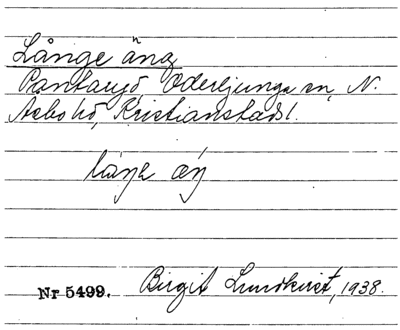 Långe äng
Pantarp, Oderljunga sn, N.
Åsbo hd, Kristianstads l.
låŋə æŋ
Nr 5499. Birgit Lundkvist, 1938.